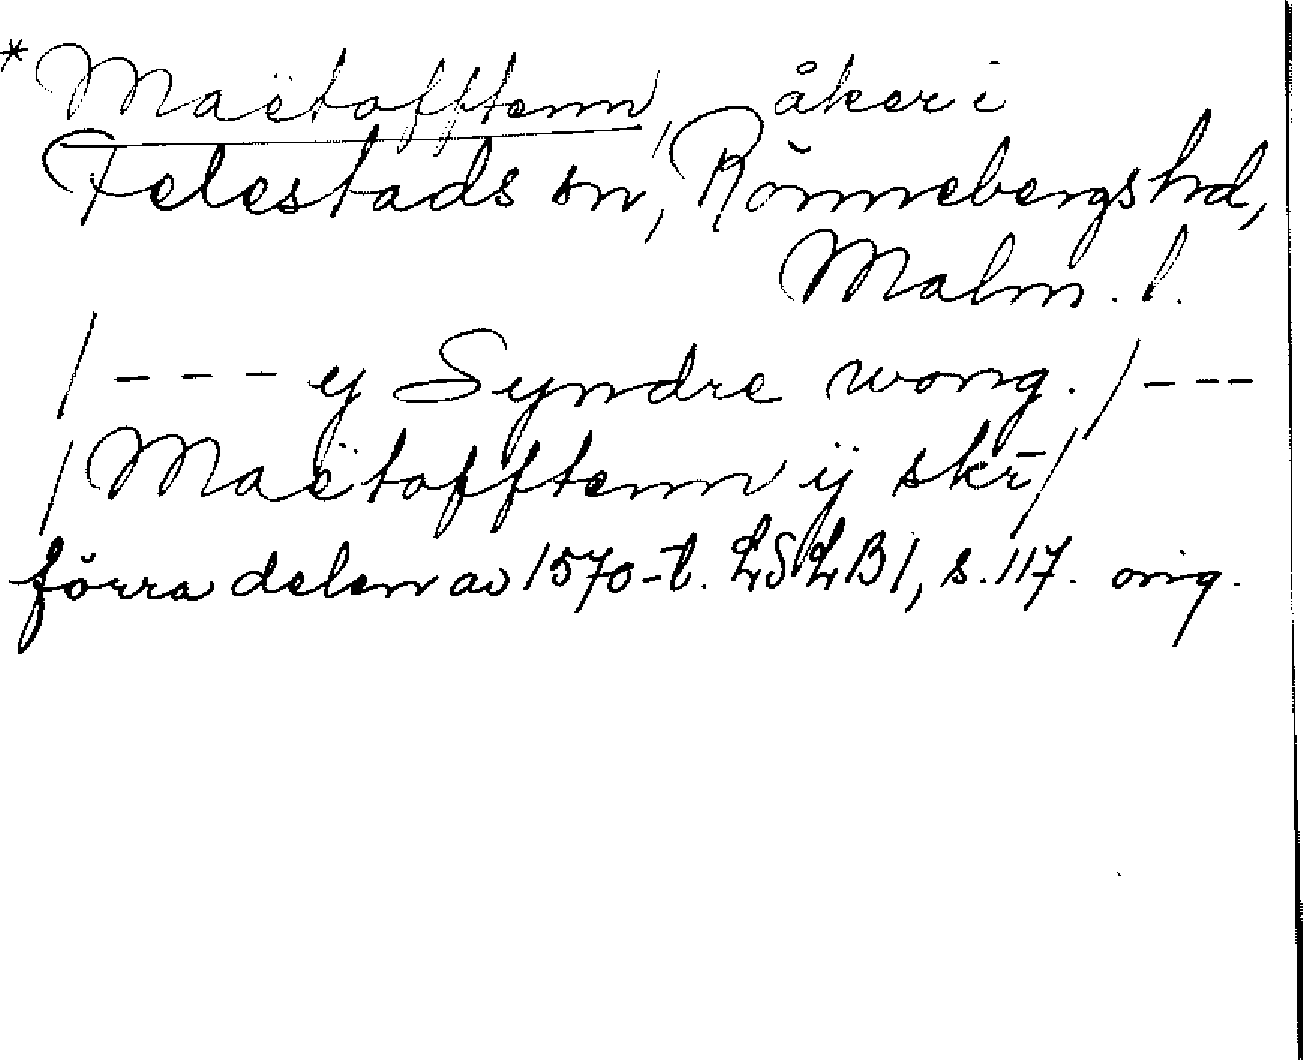 *Maëtofftenn, åker i
Felestads sn, Rönnebergs hd,
Malm. l.
/--- ij Syndre wong. /---
/Maëtofftenn ij skr̄/
förra delen av 1570-t. LSLB1, s. 117. orig.